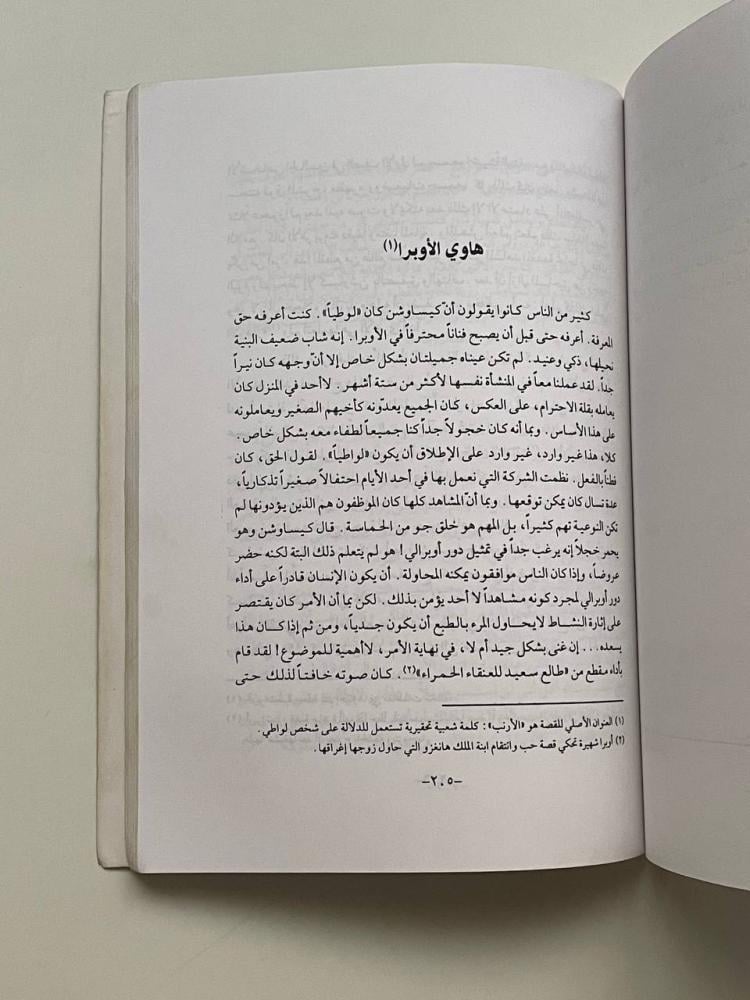 هاوي الأوبرا(١)
كثير من الناس كانوا يقولون أنّ كيساوشن كان «لوطياً». كنت أعرفه حق
المعرفة. أعرفه حتى قبل أن يصبح فناناً محترفاً في الأوبرا. إنه شاب ضعيف البنية
نحيلها، ذكي وعنيد. لم تكن عيناه جميلتان بشكل خاص إلا أنّ وجهه كان نيراً
جداً. لقد عملنا معاً في المنشأة نفسها لأكثر من ستة أشهر. لا أحد في المنزل كان
يعامله بقلة الاحترام، على العكس، كان الجميع يعدّونه كأخيهم الصغير ويعاملونه
على هذا الأساس. وبما أنه كان خجولاً جداً كنا جميعاً لطفاء معه بشكل خاص.
كلا، هذا غير وارد، غير وارد على الإطلاق أن يكون «لواطياً». لقول الحق، كان
فظناً بالفعل. نظمت الشركة التي نعمل بها في أحد الأيام احتفالاً صغيراً تذكارياً،
عدة نسال كان يمكن توقعها. وبما أنّ المشاهد كلها كان الموظفون هم الذين يؤدونها لم
تكن النوعية تهم كثيراً، بل المهم هو خلق جو من الحماسة. قال كيساوشن وهو
يحمر خجلاً إنه يرغب جداً في تمثيل دور أوبرالي! هو لم يتعلم ذلك البتة لكنه حضر
عروضاً، وإذا كان الناس موافقون يمكنه المحاولة. أن يكون الإنسان قادراً على أداء
دور أوبرالي لمجرد كونه مشاهداً لا أحد يؤمن بذلك. لكن بما أن الأمر كان يقتصر
على إثارة النشاط لا يحاول المرء بالطبع أن يكون جدياً، ومن ثم إذا كان هذا
يسعده... إن غنى بشكل جيد أم لا، في نهاية الأمر، لا أهمية للموضوع! لقد قام
بأداء مقطع من «طالع سعيد للعنقاء الحمراء»(٢). كان صوته خافتاً لذلك حتى
(١) العنوان الأصلي للقصة هو «الأرنب»: كلمة شعبية تحقيرية تستعمل للدلالة على شخص لواطي.
(٢) أوبرا شهيرة تحكي قصة حب وانتقام ابنة الملك هانغزو التي حاول زوجها إغراقها.
–٢٠٥–